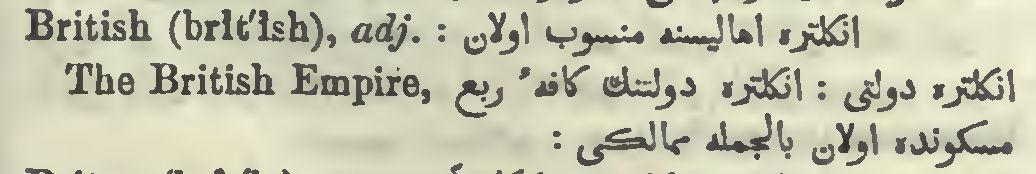 British (brĭt′ĭsh), adj. : انكلتره اهاليسنه منسوب اولان
The British Empire, انكلتره دولتى : انكلتره دولتنك كافهٔ ربع
مسكونده اولان بالجمله ممالكى :